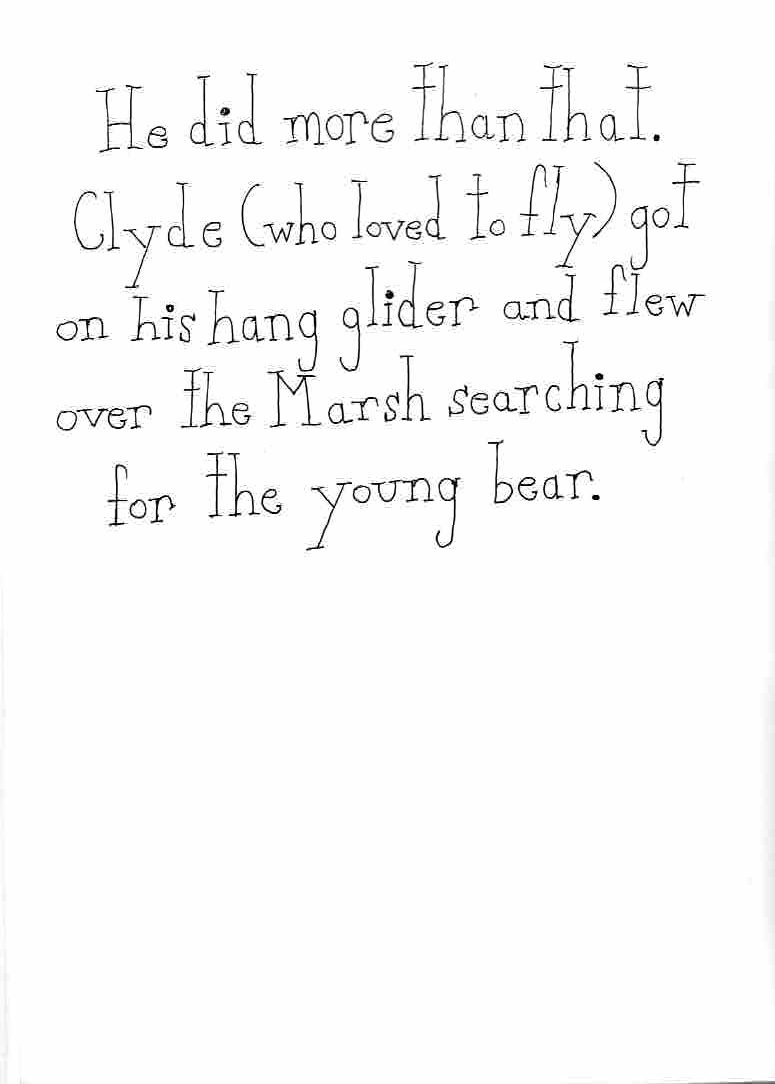 He did more than that.
Clyde (who loved to fly) got
on his hang glider and flew
over the Marsh searching
for the young bear.